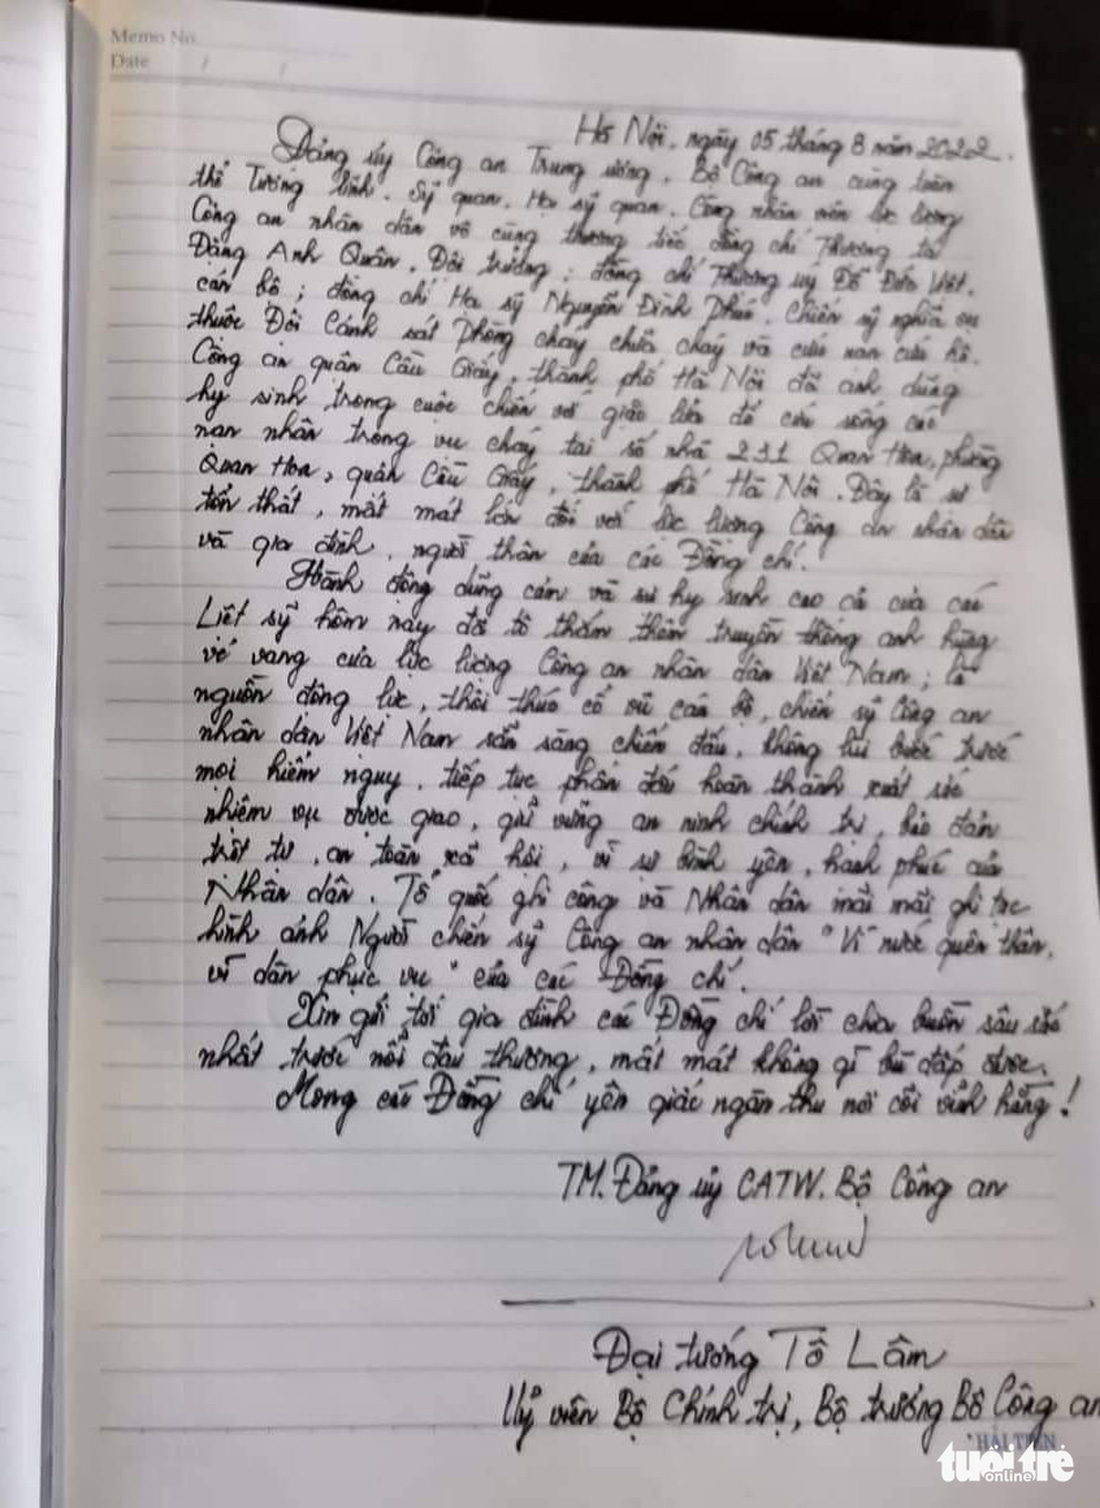 Memo No
Date / /
Hà Nội, ngày 05 tháng 8 năm 2022.
Đảng ủy Công an Trung ương, Bộ Công an cùng toàn
thể Tướng lĩnh, Sỹ quan, Hạ sỹ quan, Công nhân viên lực lượng
Công an nhân dân vô cùng thương tiếc đồng chí Thượng tá
Đặng Anh Quân, Đội trưởng; đồng chí Thượng uý Đỗ Đức Việt,
cán bộ; đồng chí Hạ sỹ Nguyễn Đình Phúc, Chiến sỹ nghĩa vụ
thuộc Đội Cảnh sát phòng cháy chữa cháy và cứu nạn cứu hộ,
Công an quận Cầu Giấy, thành phố Hà Nội đã anh dũng
hy sinh trong cuộc chiến với giặc lửa để cứu sống các
nạn nhân trong vụ cháy tại số nhà 231 Quan Hoa, phường
Quan Hoa, quận Cầu Giấy, thành phố Hà Nội. Đây là sự
tổn thất, mất mát lớn đối với lực lượng Công an nhân dân
và gia đình, người thân của các Đồng chí.
Hành động dũng cảm và sự hy sinh cao cả của các
Liệt sỹ hôm nay đã tô thắm thêm truyền thống anh hùng
vẻ vang của lực lượng Công an nhân dân Việt Nam; là
nguồn động lực, thôi thúc cổ vũ cán bộ, chiến sỹ Công an
nhân dân Việt Nam sẵn sàng chiến đấu, không lùi bước trước
mọi hiểm nguy, tiếp tục phấn đấu hoàn thành xuất sắc
nhiệm vụ được giao, giữ vững an ninh chính trị, bảo đảm
trật tự, an toàn xã hội, vì sự bình yên, hạnh phúc của
Nhân dân. Tổ quốc ghi công và Nhân dân mãi mãi ghi tạc
hình ảnh Người chiến sỹ Công an nhân dân "Vì nước quên thân,
vì dân phục vụ" của các Đồng chí.
Xin gửi tới gia đình các Đồng chí lời chia buồn sâu sắc
nhất trước nỗi đau thương, mất mát không gì bù đắp được.
Mong các Đồng chí yên giấc ngàn thu nơi cõi vĩnh hằng!
TM. Đảng uỷ CATW. Bộ Công an
Đại tướng Tô Lâm
Uỷ viên Bộ Chính trị, Bộ trưởng Bộ Công an
HẢI TIẾN
tuổi trẻ
online